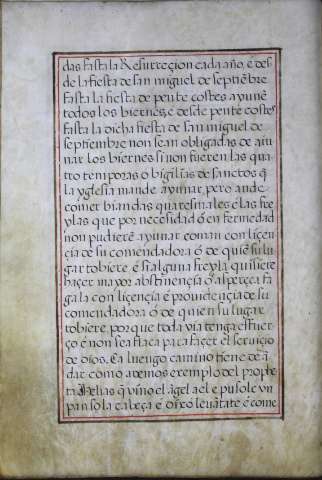 das fasta la Resurreçion cada año, e des
de la fiesta de san miguel de septiẽbre
fasta la fiesta de pente costes ayunẽ
todos los biernes, e desde pente costes
fasta la dicha fiesta de san miguel de
septiembre non sean obligadas de aiu
nar los biernes si non fueren las qua
tro temporas o bigilias de sanctos q̃
la yglesia mande ayunar, pero an de
comer biandas quaresmales e las fre
ylas que por necesidad ó enfermedad
non pudierẽ ayunar coman con licen
çia de su comendadora ó de quiẽ su lu
gar tobiere, e si alguna freyla quisiere
haçer mayor abstinençia o aspereça fa
ga la con liçençia e prouidençia de su
comendadora ó de quien su lugar
tobiere, porque toda via tenga esfuer
ço e non sea flaca para façer el seruiçio
de dios. Ca luengo camino tiene de ã
dar como auemos exemplo del prophe
ta Helias q̃ vino el ãgel a el e pusole vn
pan so la cabeça e dixo leuãtate e come